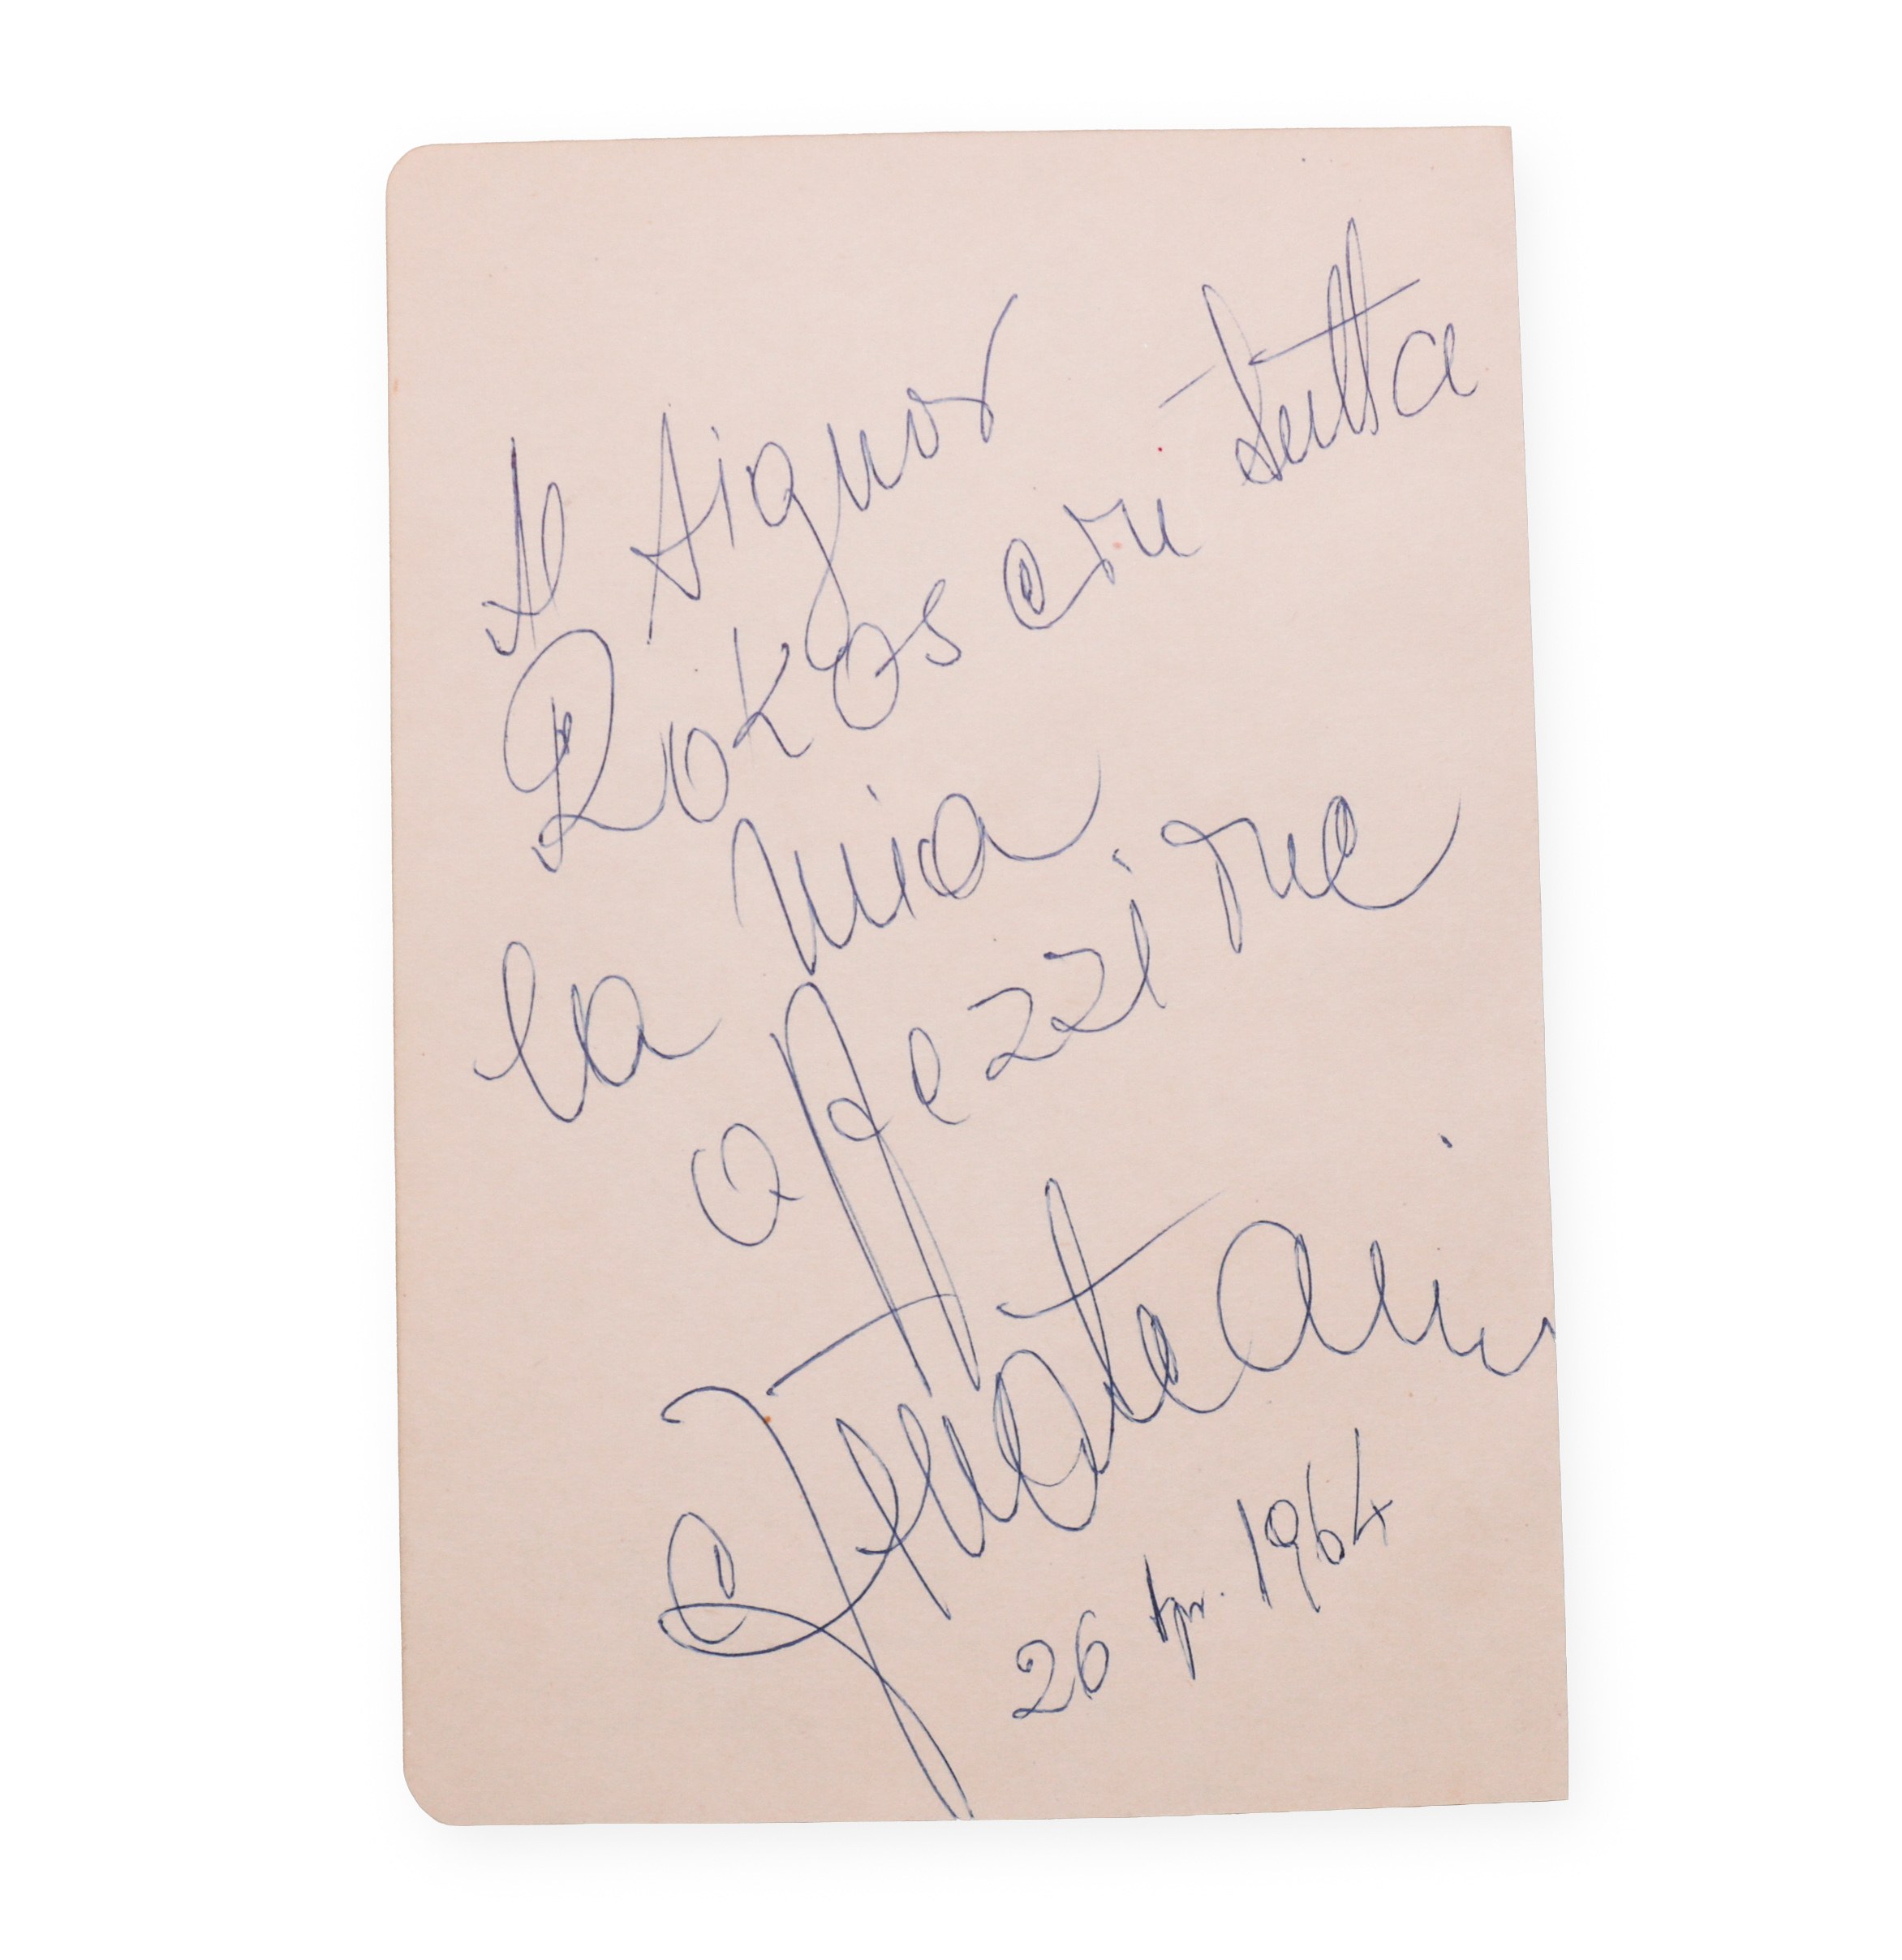 Al Signor
Rokos con tutta
la mia
affezzione
26 Apr. 1964